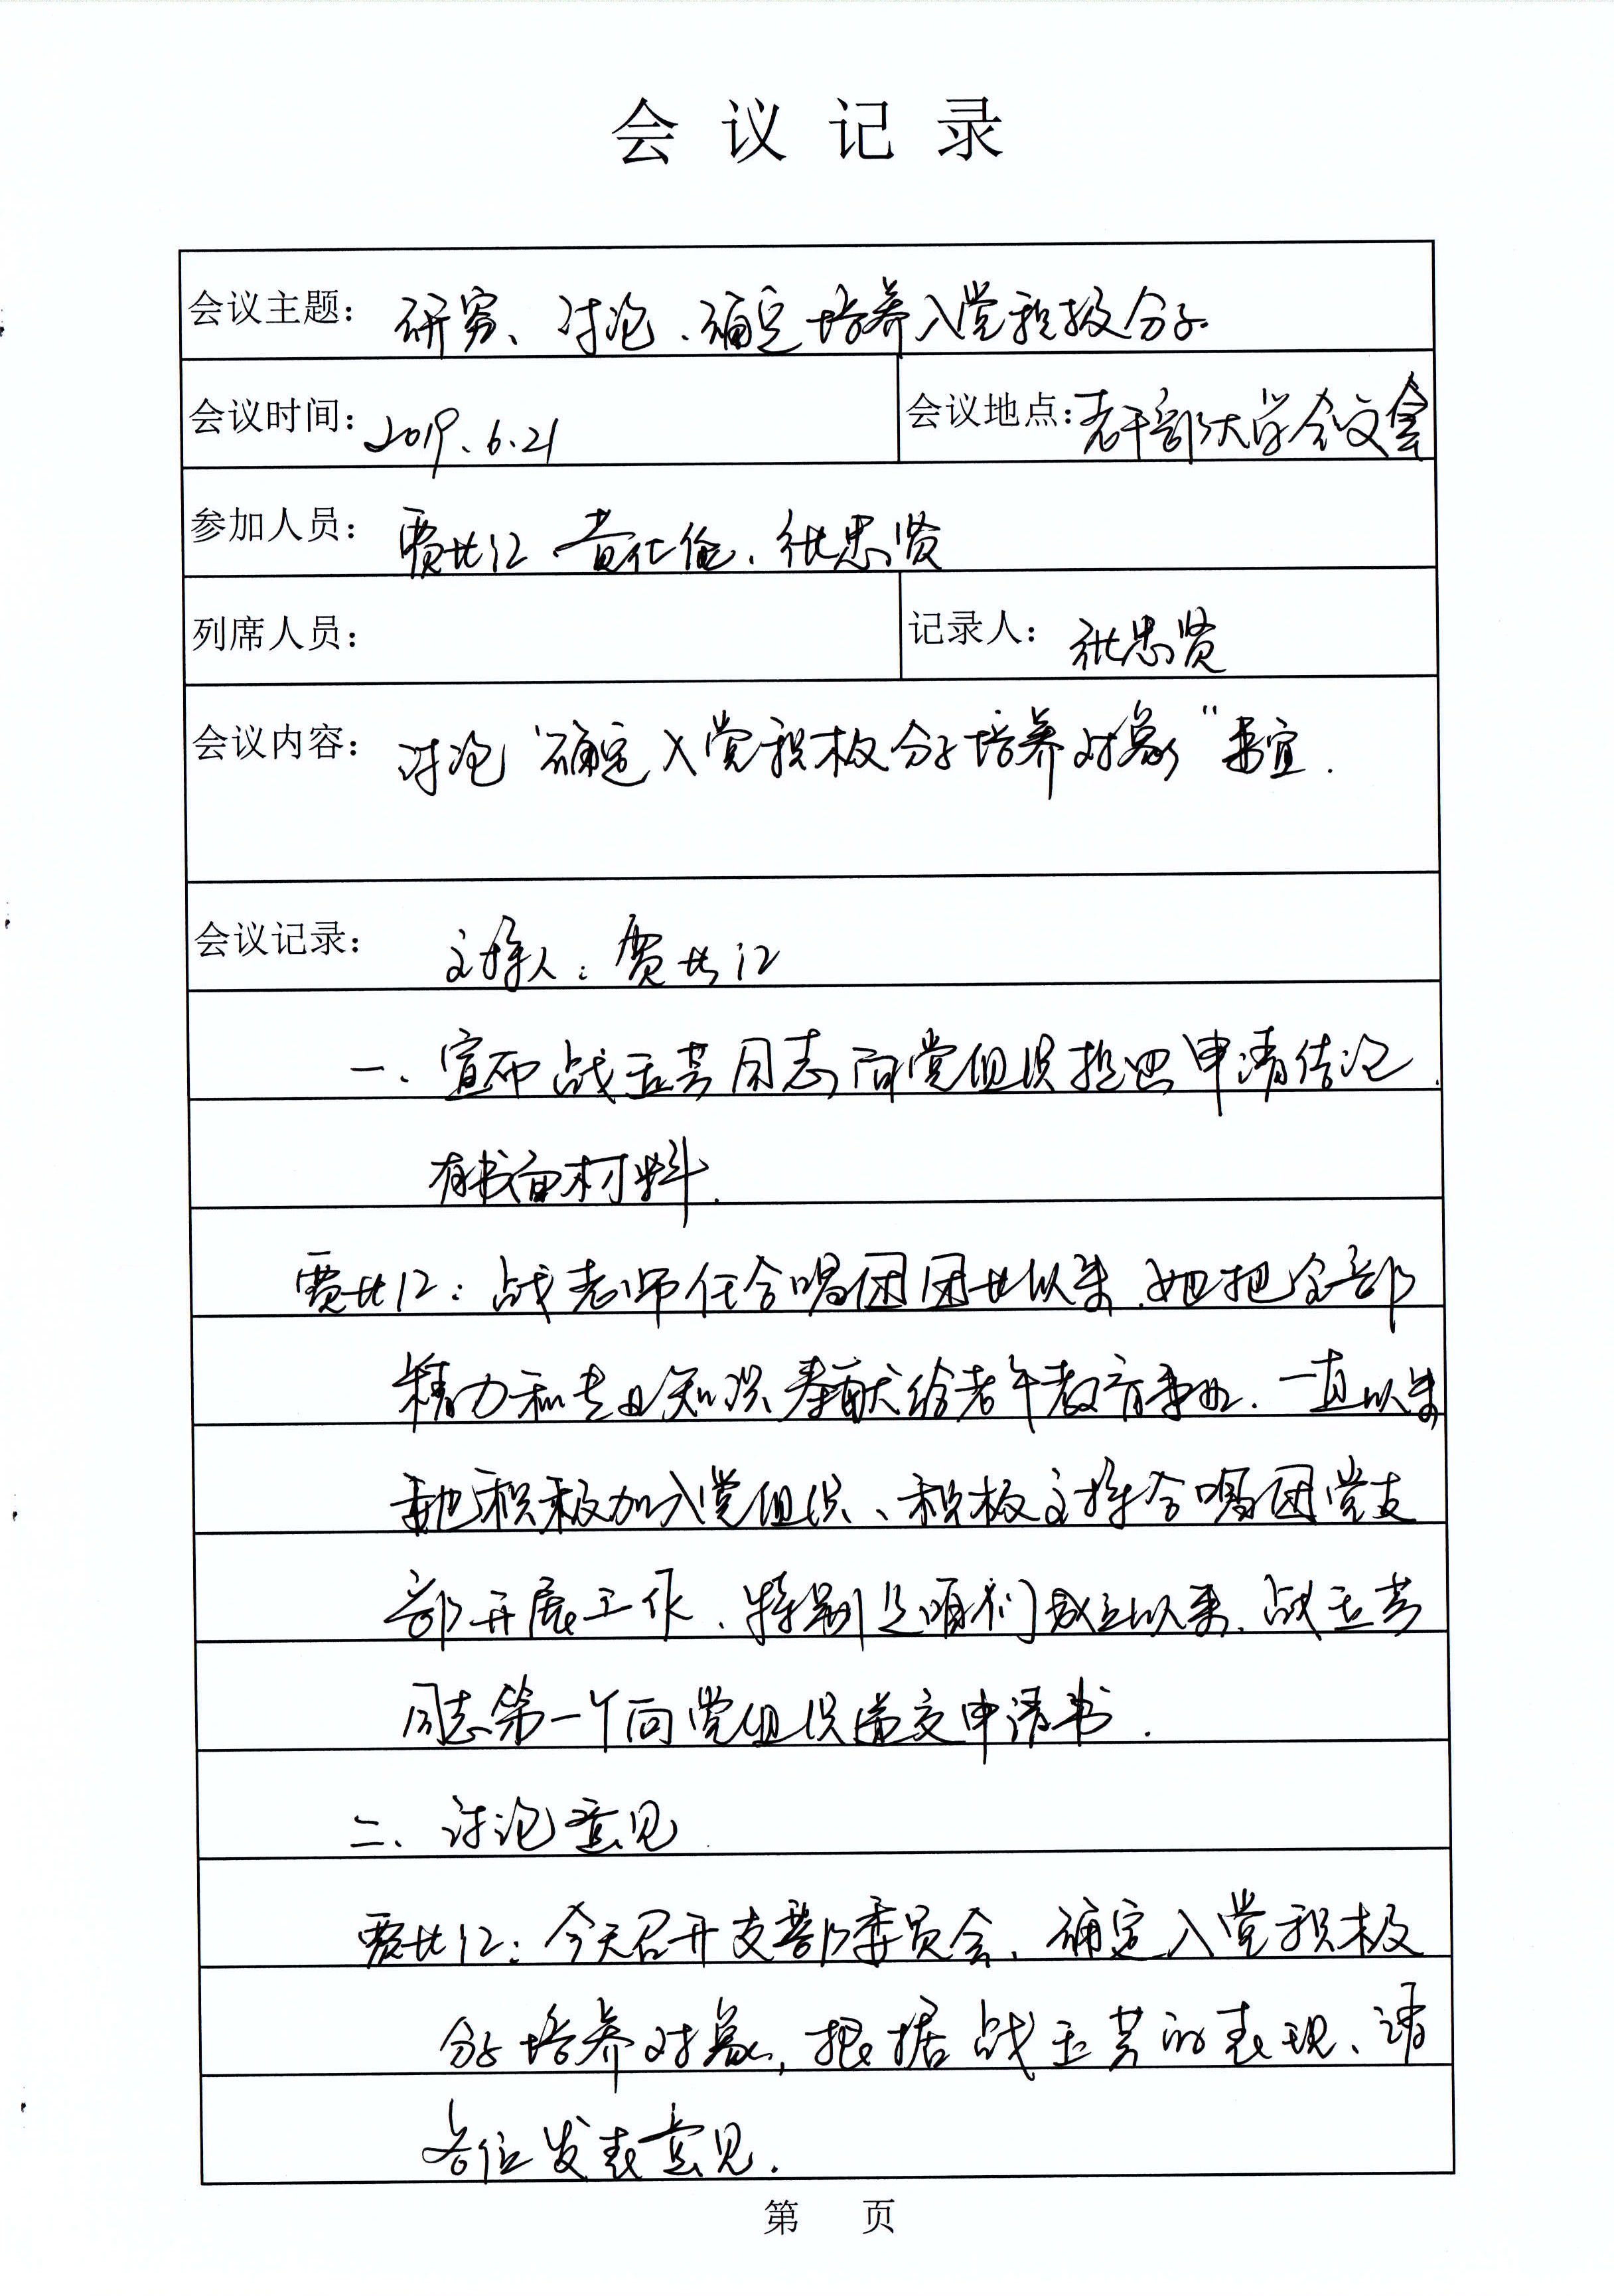 会议记录
会议主题：研究、讨论、确定培养入党积极分子
会议时间：2019.6.21
会议地点：老干部大学会文舍
参加人员：贾比江、黄仕伦、张忠贤
列席人员：
记录人：张忠贤
会议内容：讨论“确定入党积极分子培养对象”事宜.
会议记录：主持人：贾比江
一、宣布战玉芳同志向党组织提出申请
有书面材料.
贾比江：战老师任合唱团团长以来、她把全部
精力和专业知识奉献给老年教育事业.一直以来
她积极加入党组织、积极支持合唱团党支
部开展工作、特别是咱们成立以来、战玉芳
同志第一个向党组织递交申请书.
二、讨论意见.
贾比江：今天召开支部委员会、确定入党积极
分子培养对象，根据战玉芳的表现、请
各位发表意见.
第 页